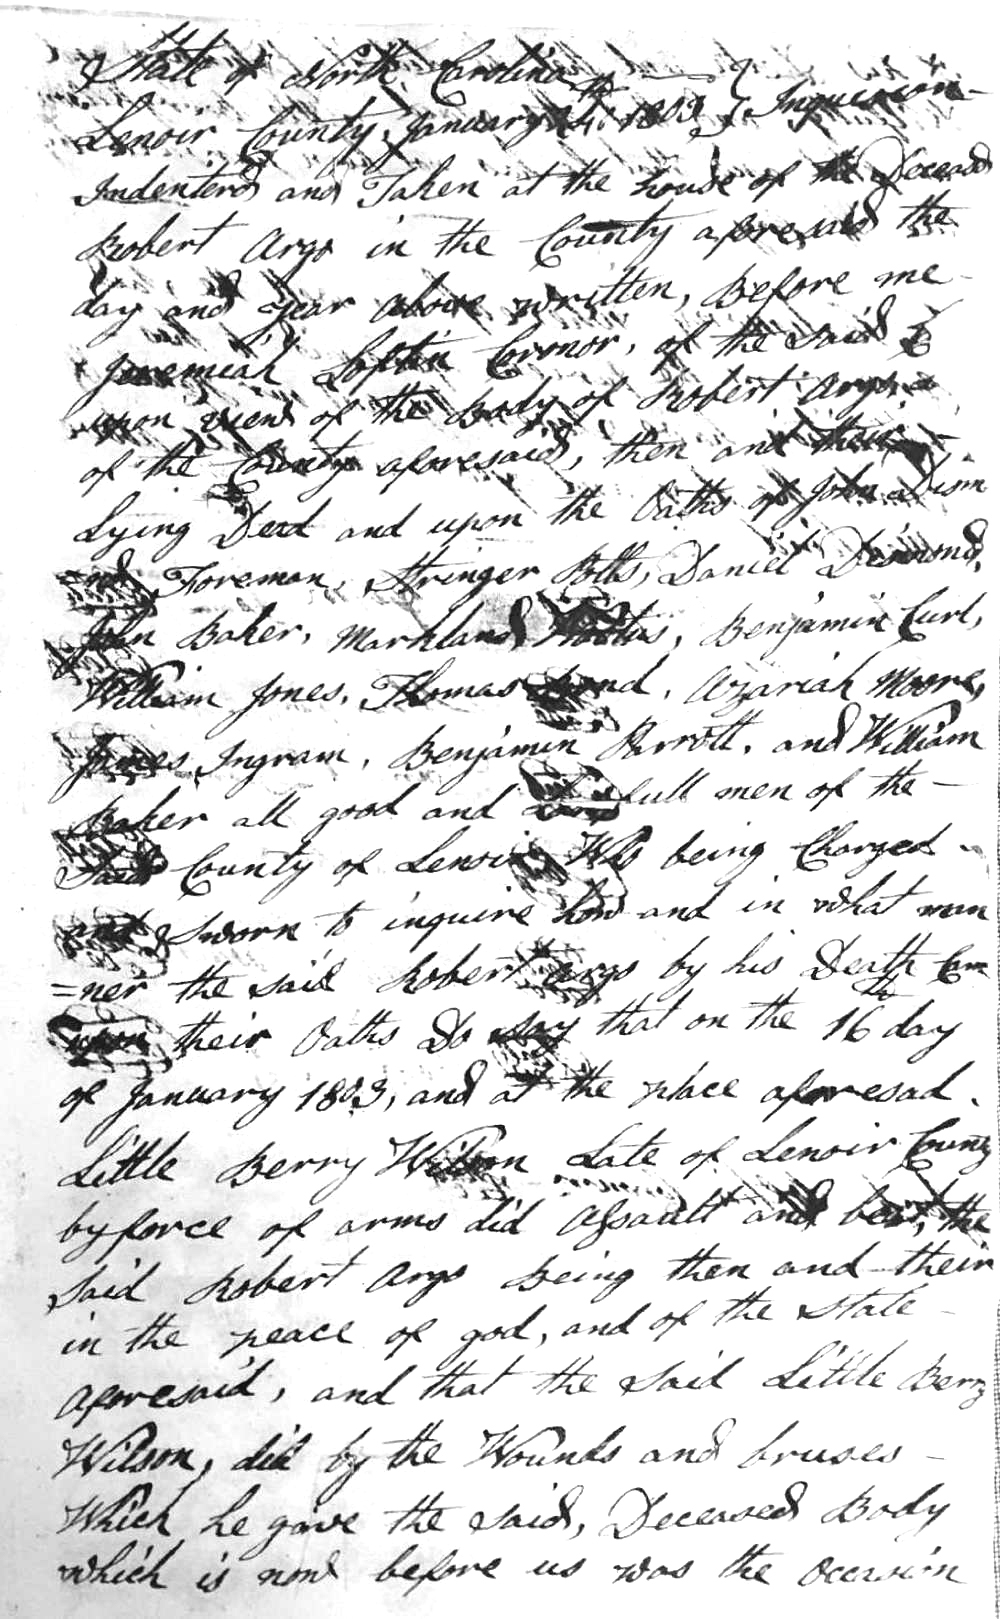 State of North Carolina
Lenoir County, January 24th 1803 } Inquisition
Indentered and Taken at the house of the Deceased
Robert Argo in the County aforesaid the
day and year above written, Before me
Jeremiah Loftin Coronor, of the said C
upon view of the Body of Robert Argo
of the County aforesaid, then and their
Lying Dead and upon the Oaths of John Dism
=ond Foreman, Stringer Potts, Daniel Dismond,
John Baker, Markland, Benjamin Curl,
William Jones, Thomas, Azariah Moore,
James Ingram, Benjamin Parrott, and William
Baker all good and Lawfull men of the
said County of Lenoir Who being Charged
and sworn to inquire how and in what man
=ner the said Robert Argo by his Death Cam
upon their Oaths Do say that on the 16th day
of January 1803, and at the place aforesad.
Little Berry Wilson Late of Lenoir County
by force of arms did assault and beat, the
said Robert Argo Being then and their
in the peace of god, and of the state
aforesaid, and that the said Little Berry
Wilson, did by the Wounds and bruses
Which he gave the said, Deceased Body
which is now before us was the occasion